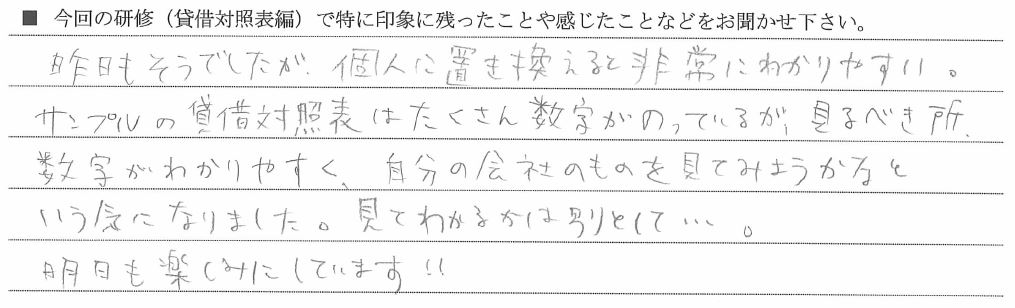 ■ 今回の研修（貸借対照表編）で特に印象に残ったことや感じたことなどをお聞かせ下さい。
昨日もそうでしたが、個人に置き換えると非常にわかりやすい。
サンプルの貸借対照表はたくさん数字がのっているが、見るべき所、
数字がわかりやすく、自分の会社のものを見てみようかなと
いう気になりました。見てわかるかは別として…。
明日も楽しみにしています!!